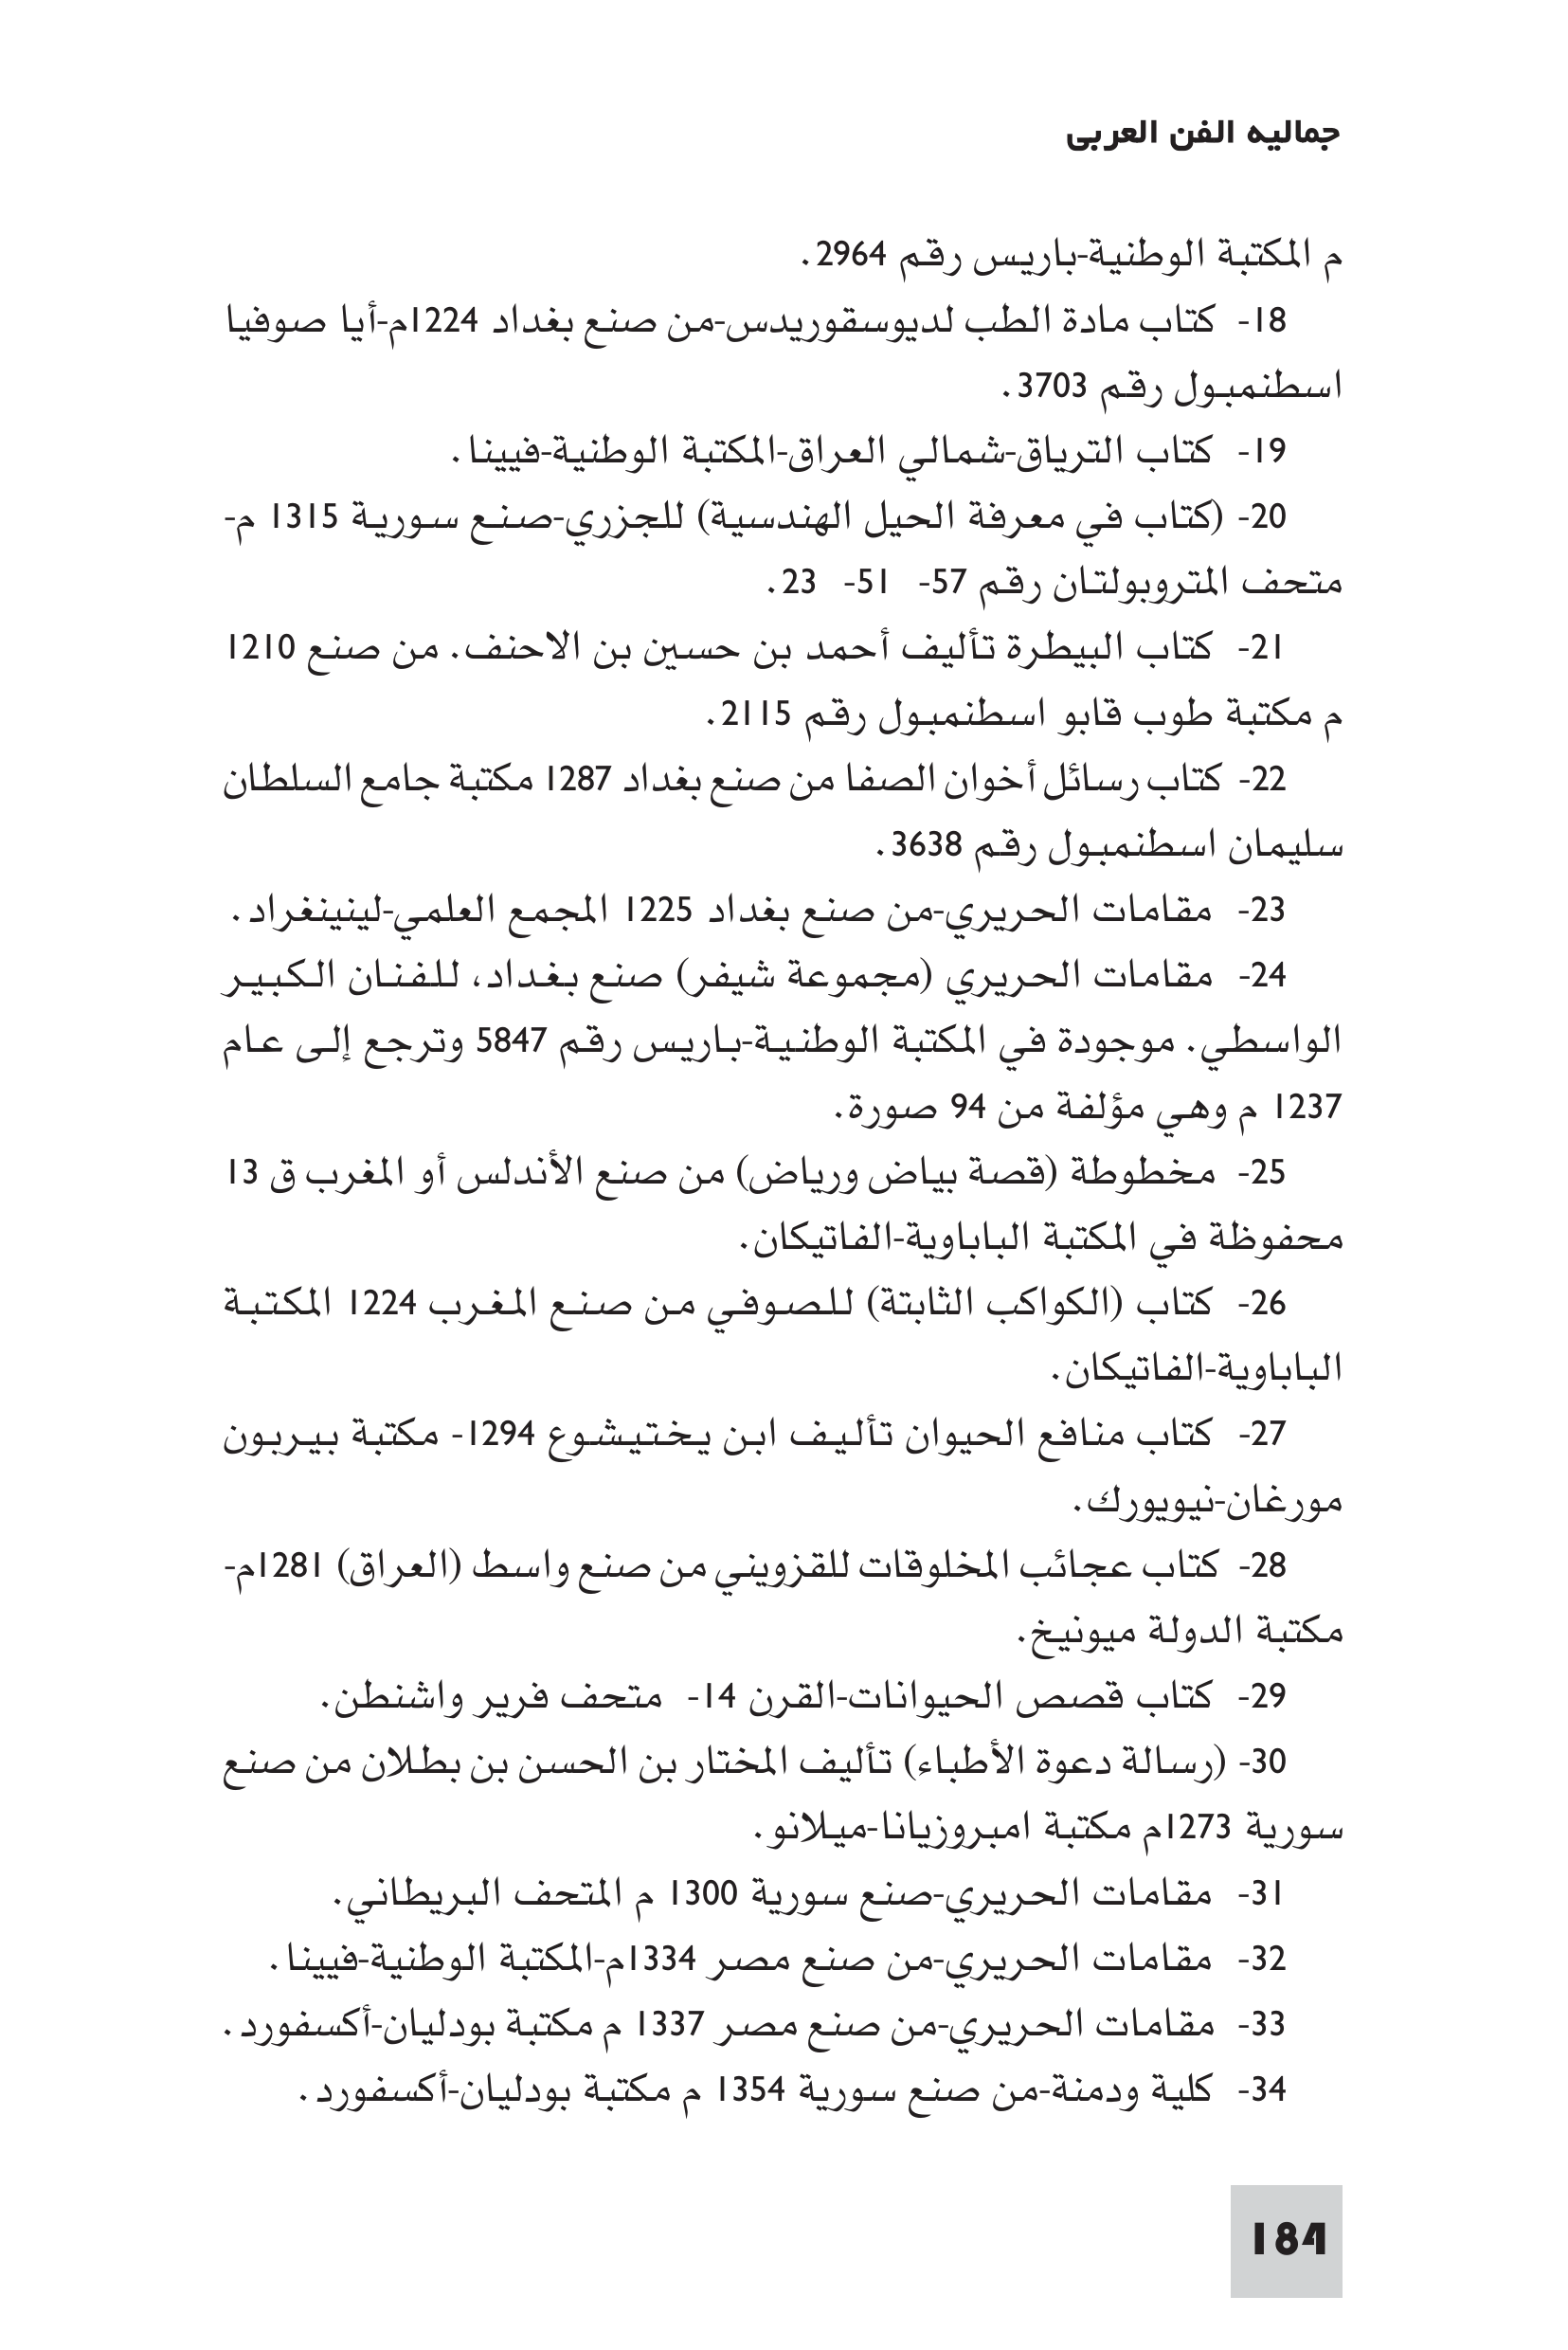 جماليه الفن العربى
م المكتبة الوطنية-باريس رقم 2964.
18- كتاب مادة الطب لديوسقوريدس-من صنع بغداد 1224م-أيا صوفيا
اسطنمبول رقم 3703.
19- كتاب الترياق-شمالي العراق-المكتبة الوطنية-فيينا.
20- (كتاب في معرفة الحيل الهندسية) للجزري-صنع سورية 1315 م-
متحف المتروبولتان رقم 57- 51- 23.
21- كتاب البيطرة تأليف أحمد بن حسين بن الاحنف. من صنع 1210
م مكتبة طوب قابو اسطنمبول رقم 2115.
22- كتاب رسائل أخوان الصفا من صنع بغداد 1287 مكتبة جامع السلطان
سليمان اسطنمبول رقم 3638.
23- مقامات الحريري-من صنع بغداد 1225 المجمع العلمي-لينينغراد.
24- مقامات الحريري (مجموعة شيفر) صنع بغداد، للفنان الكبير
الواسطي. موجودة في المكتبة الوطنية-باريس رقم 5847 وترجع إلى عام
1237 م وهي مؤلفة من 94 صورة.
25- مخطوطة (قصة بياض ورياض) من صنع الأندلس أو المغرب ق 13
محفوظة في المكتبة الباباوية-الفاتيكان.
26- كتاب (الكواكب الثابتة) للصوفي من صنع المغرب 1224 المكتبة
الباباوية-الفاتيكان.
27- كتاب منافع الحيوان تأليف ابن يختيشوع 1294- مكتبة بيربون
مورغان-نيويورك.
28- كتاب عجائب المخلوقات للقزويني من صنع واسط (العراق) 1281م-
مكتبة الدولة ميونيخ.
29- كتاب قصص الحيوانات-القرن 14- متحف فرير واشنطن.
30- (رسالة دعوة الأطباء) تأليف المختار بن الحسن بن بطلان من صنع
سورية 1273م مكتبة امبروزيانا-ميلانو.
31- مقامات الحريري-صنع سورية 1300 م المتحف البريطاني.
32- مقامات الحريري-من صنع مصر 1334م-المكتبة الوطنية-فيينا.
33- مقامات الحريري-من صنع مصر 1337 م مكتبة بودليان-أكسفورد.
34- كلية ودمنة-من صنع سورية 1354 م مكتبة بودليان-أكسفورد.
184